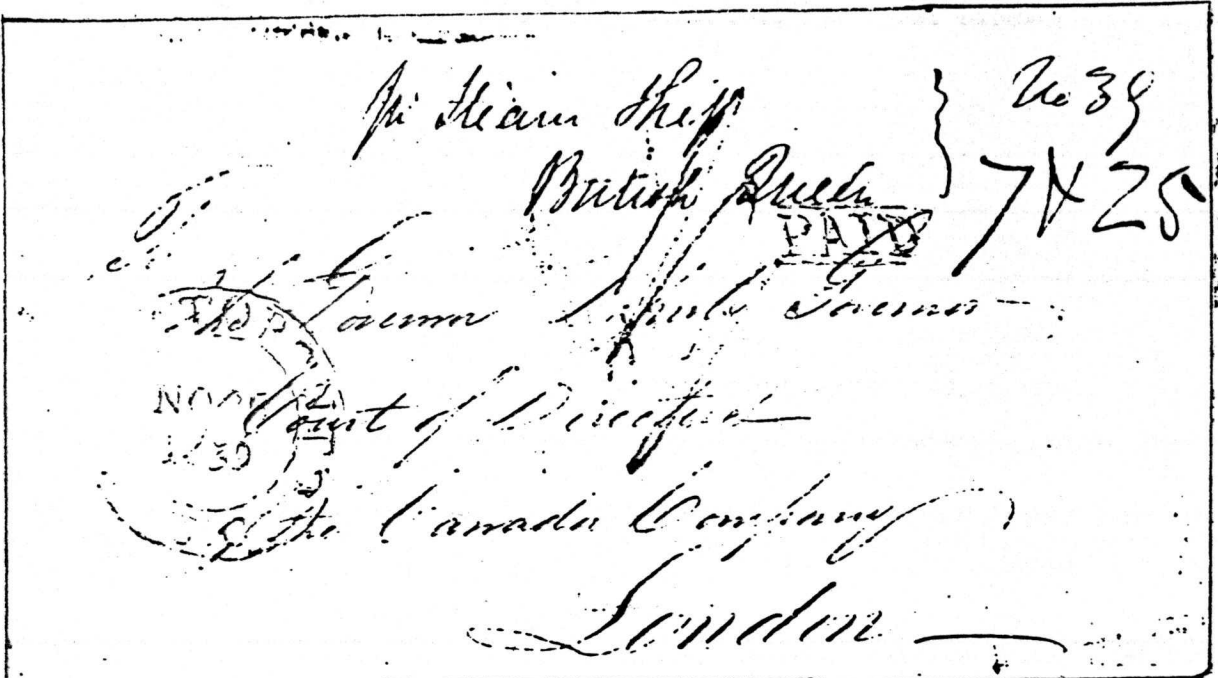 Pr Steam Ship
British Queen
No 39
7N25
PAID
The Governor Deputy Governor
Court of Directors
of the Canada Company
London
NOV
1839